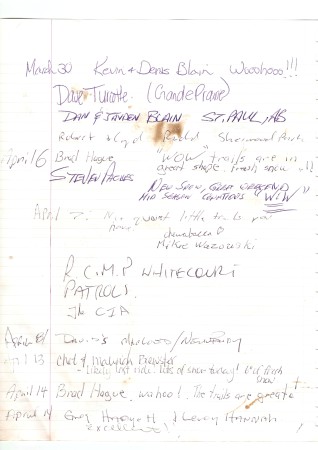 March 30 Kevin & Denis Blain Woohooo!!!
Dave Turcotte (Grande Prairie)
DAN & JAYDEN BLAIN ST. PAUL, AB
Robert & Lloyd Sherwood Park
April 6 Brad Hague "WOW" trails are in
great shape fresh snow !!
STEVEN
NEW SNOW, GREAT GROOMING
MID SEASON CONDITIONS WOW
April 7: quiet little trails you
have!
Mike Wazowski
R.C.M.P WHITECOURT
PATROLS
CIA
April 8
13 Chet & Brewster
- Likely last ride. Lots of snow today! 6" of fresh
snow
April 14 Brad Hague wahoo! The trails are great
April 14 Hannah
excellent!